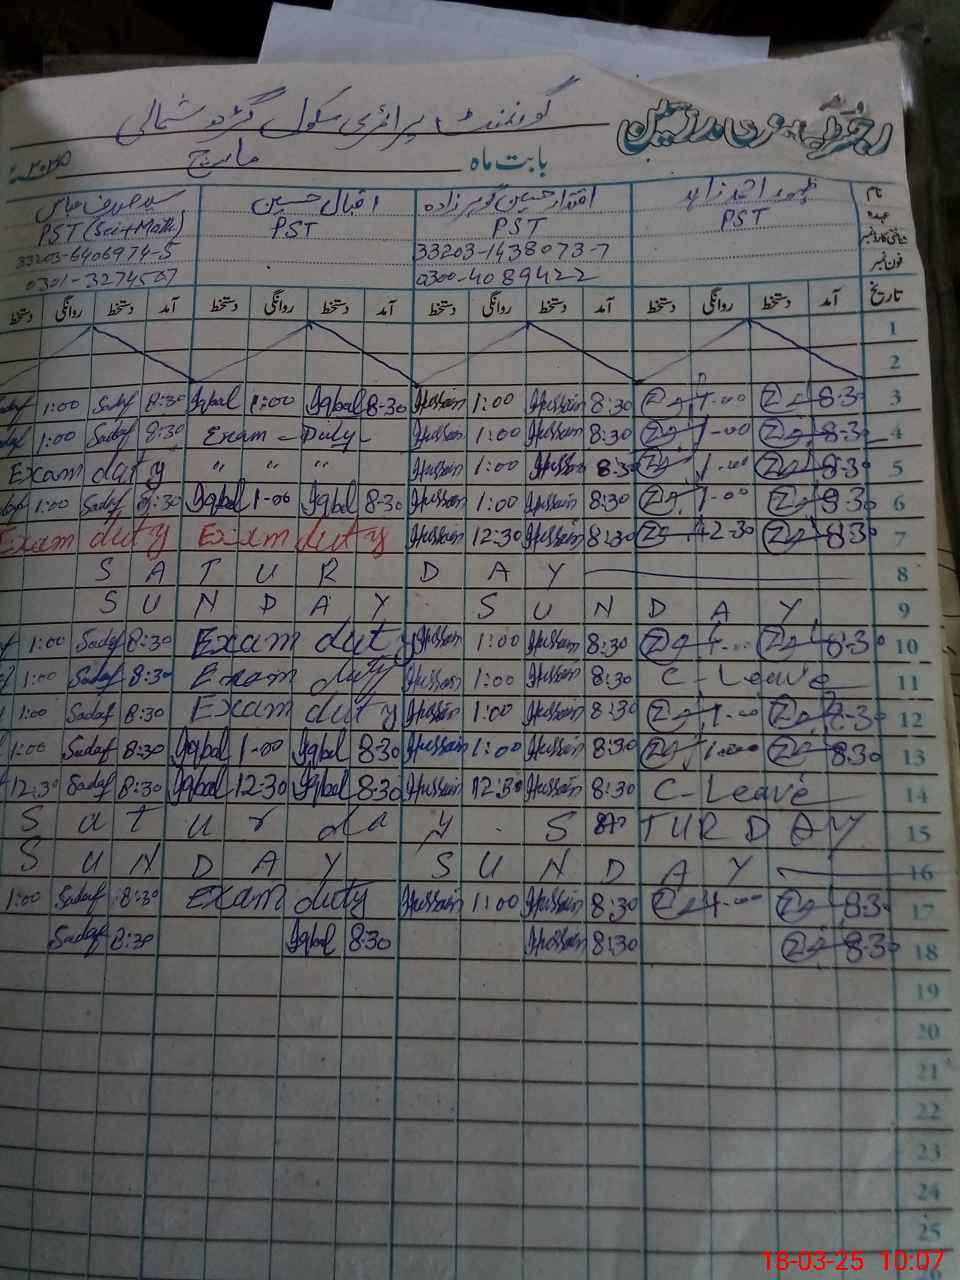 گورنمنٹ پرائمری سکول گڑھ شمالی
رجسٹر حاضری مدرسین
بابت ماہ مارچ ۲۰۲۵ء
نام ظہور احمد زاہد اقتدار حسین گوہر زادہ اقبال حسین سید صدف عباس
عہدہ PST PST PST PST (Sci+Math)
شناختی کارڈ نمبر 33203-1438073-7 33203-6406974-5
فون نمبر 0300-4089422 0301-3274567
تاریخ آمد دستخط روانگی دستخط آمد دستخط روانگی دستخط آمد دستخط روانگی دستخط آمد دستخط روانگی دستخط
1
2
1:00 Sadaf 8:30 Iqbal 1:00 Iqbal 8-30 Hussain 1:00 Hussain 8:30 1-00 8-30 3
1:00 Sadaf 8:30 Exam - Duty - Hussain 1:00 Hussain 8:30 1-00 8-30 4
Exam duty " " " Hussain 1:00 Hussain 8:30 1-00 8-30 5
1:00 Sadaf 8:30 Iqbal 1-00 Iqbal 8-30 Hussain 1:00 Hussain 8:30 1-00 8-30 6
Exam duty Exam duty Hussain 12:30 Hussain 8:30 12-30 8-30 7
S A T U R D A Y 8
S U N D A Y S U N D A Y 9
1:00 Sadaf 8:30 Exam duty Hussain 1:00 Hussain 8:30 1-00 8-30 10
1:00 Sadaf 8:30 Exam duty Hussain 1:00 Hussain 8:30 C-Leave 11
1:00 Sadaf 8:30 Exam duty Hussain 1:00 Hussain 8:30 1-00 8-30 12
1:00 Sadaf 8:30 Iqbal 1-00 Iqbal 8-30 Hussain 1:00 Hussain 8:30 1-00 8-30 13
12:30 Sadaf 8:30 Iqbal 12-30 Iqbal 8-30 Hussain 12:30 Hussain 8:30 C-Leave 14
S a t u r d a y S A T U R D A Y 15
S U N D A Y S U N D A Y 16
1:00 Sadaf 8:30 Exam duty Hussain 1:00 Hussain 8:30 1-00 8-30 17
Sadaf 8:30 Iqbal 8-30 Hussain 8:30 8-30 18
19
20
21
22
23
24
25
18-03-25 10:07